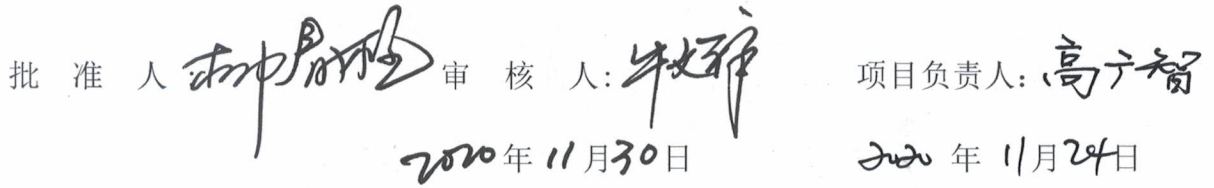 批 准 人 审 核 人: 项目负责人: 高广智
2020年11月30日 2020年11月24日